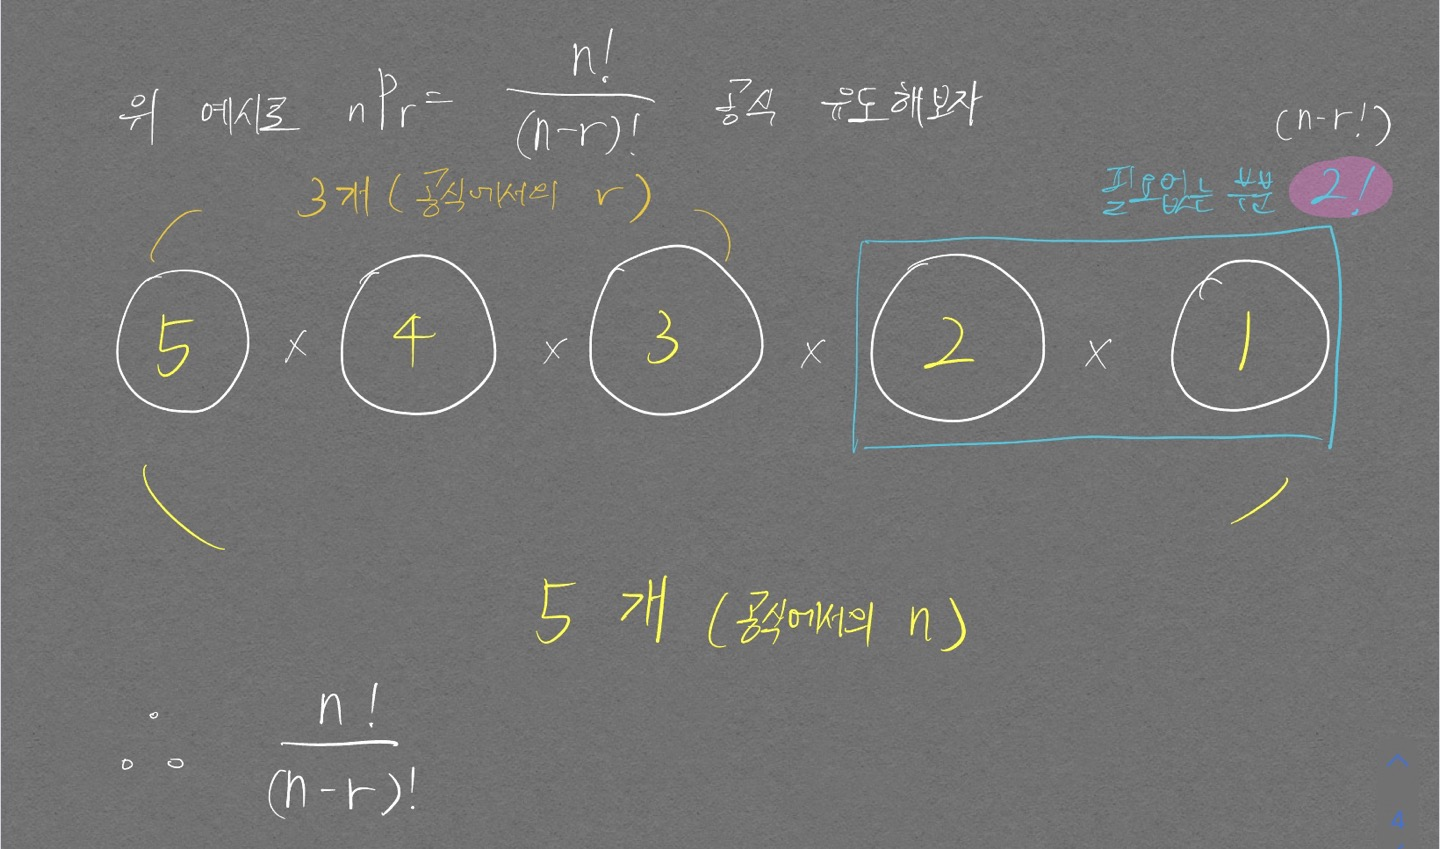 위 예시로 nPr= n!/(n-r)! 공식 유도해보자
(n-r!)
3개 (공식에서의 r)
필요없는 부분 2!
5 x 4 x 3 x 2 x 1
5개 (공식에서의 n)
∴ n!/(n-r)!
4